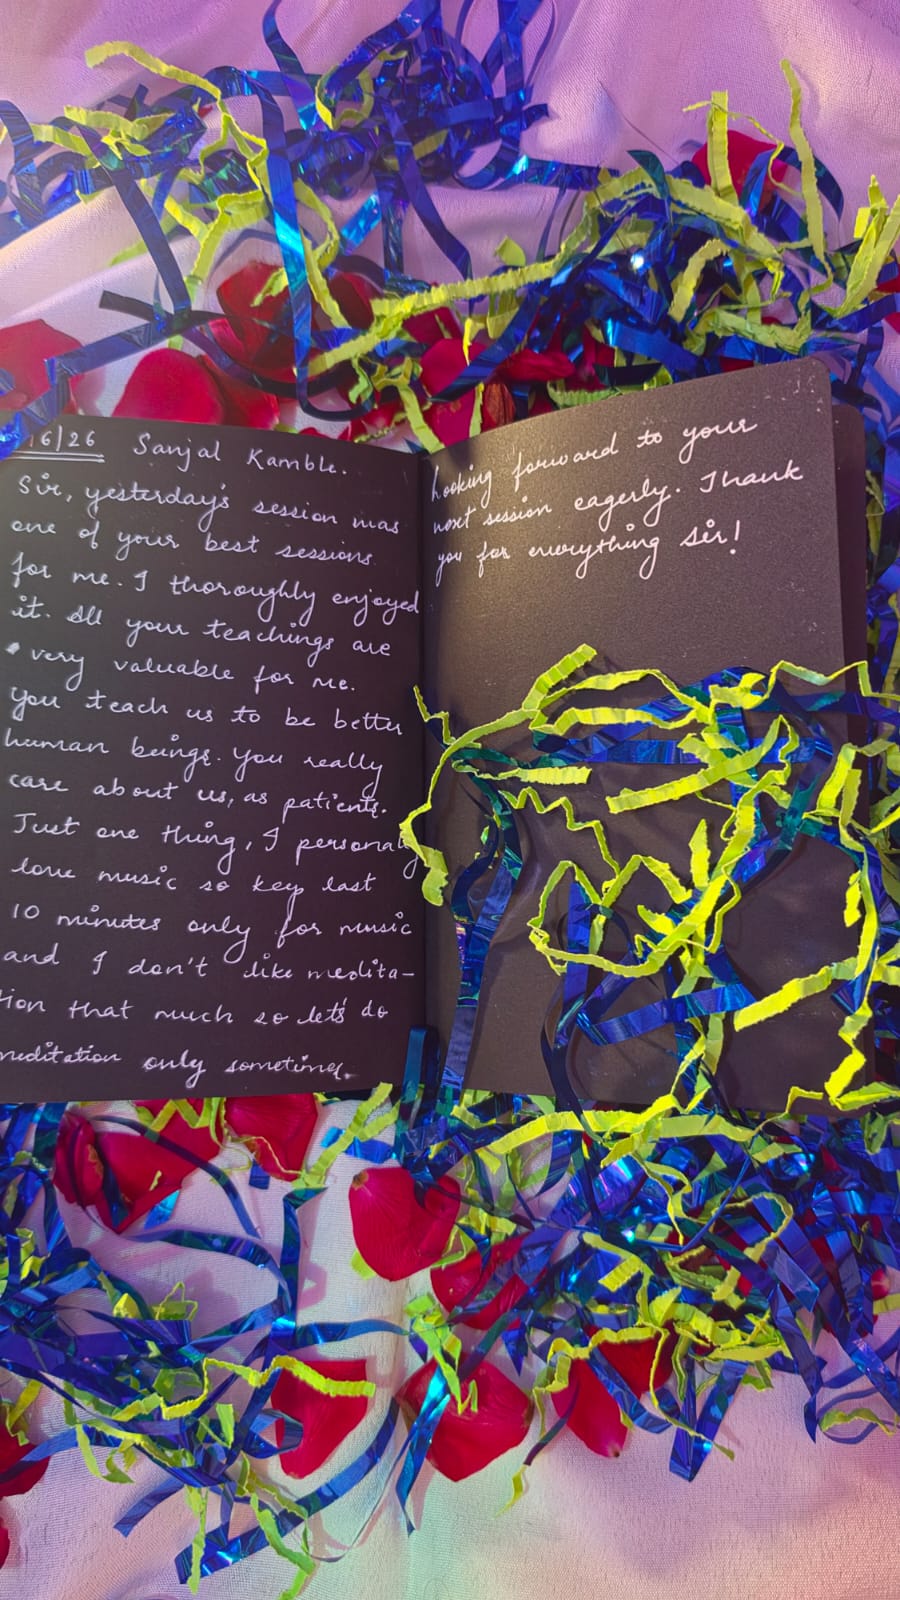 16/26 Sanjal Kamble.
Sir, yesterday's session was
one of your best sessions
for me. I thoroughly enjoyed
it. All your teachings are
very valuable for me.
you teach us to be better
human beings. You really
care about us, as patients.
Just one thing, I personally
love music so key last
10 minutes only for music
and I don't like medita-
tion that much so let's do
meditation only sometimes.
Looking forward to your
next session eagerly. Thank
you for everything Sir!